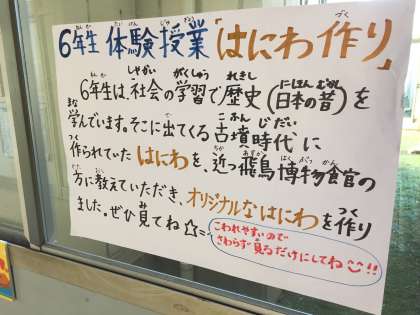 6年生 体験授業「はにわ作り」
6年生は、社会の学習で歴史(日本の昔)を
学んでいます。そこに出てくる古墳時代に
作られていたはにわを、近つ飛鳥博物館の
方に教えていただき、オリジナルなはにわを作り
ました。ぜひ見てね☆=
こわれやすいので
さわらず見るだけにしてね!!